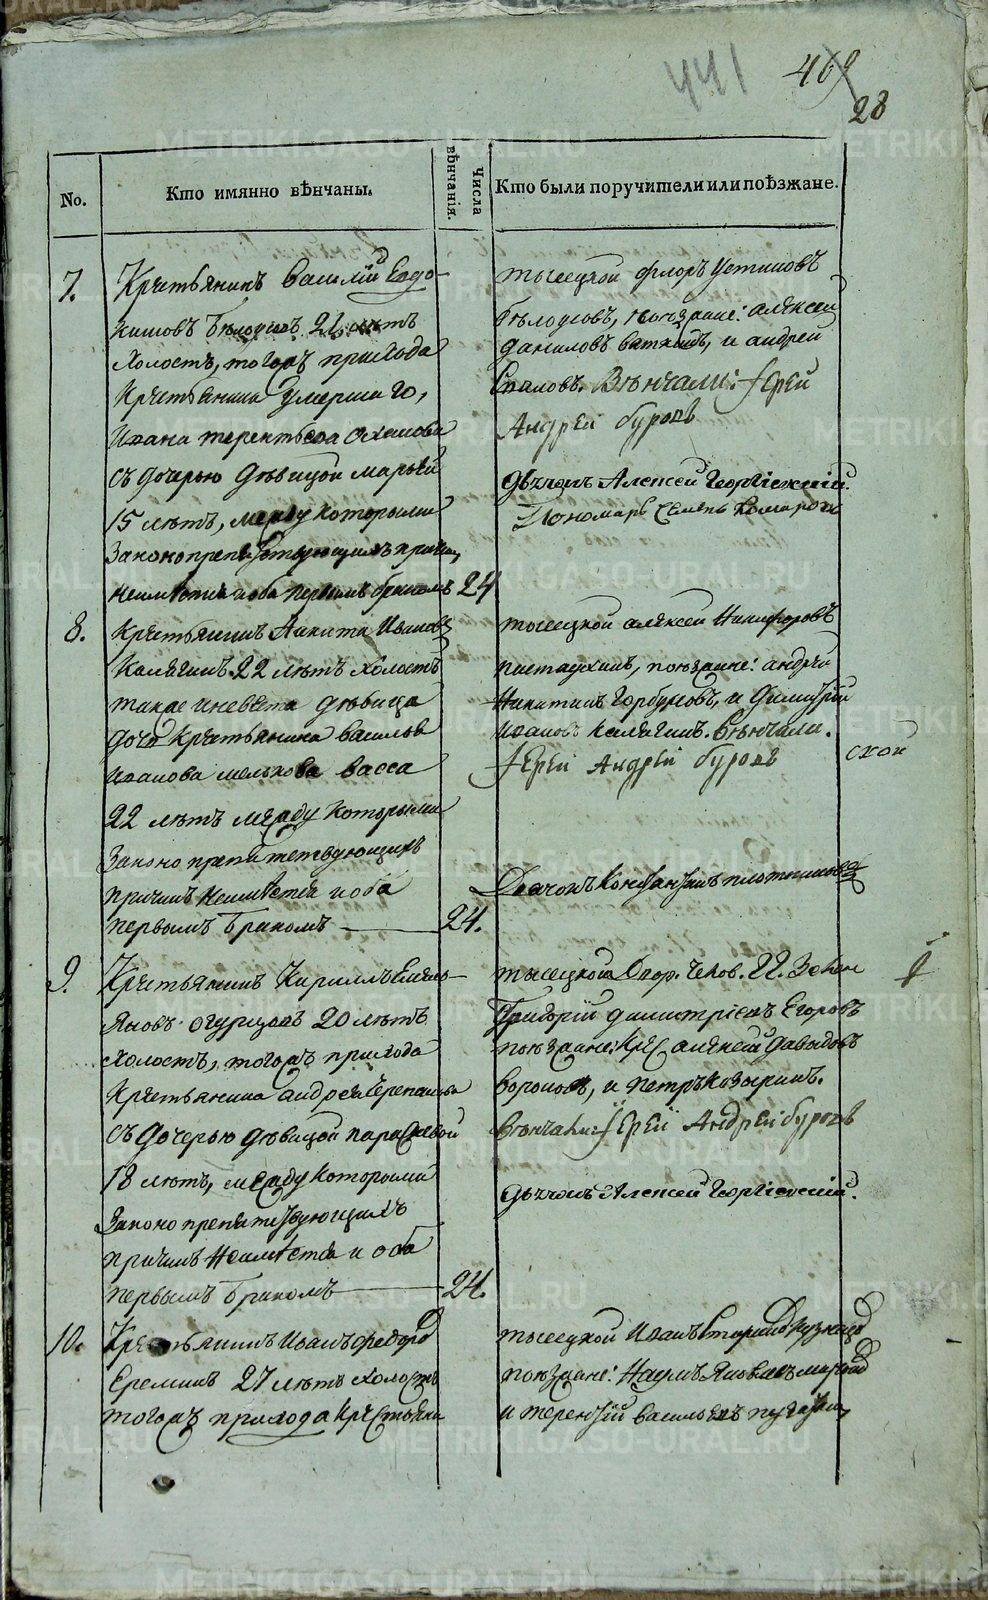 441
469
28
No.
Кто имянно вѣнчаны.
Числа вѣнчанія.
Кто были поручители или поѣзжане.
7.
Крестьянинъ Василій Евдо-
кимовъ Бѣлоусовъ 21 лѣтъ
холостъ, тогожъ прихода
Крестьянина Умершаго,
Ивана терентьева
съ дочерью дѣвицой марьей
15 лѣтъ, между которыми
Законопрепятствующихъ причин
неимѣется и оба первымъ бракомъ
24
тысецкой флоръ Устиновъ
бѣлоусовъ, поѣзжане: алексей
даниловъ, и андрей
Вѣнчали: Іерей
Андрей буровъ
дьячокъ Алексей Георгіевскій.
Пономарь Семенъ Комаровъ
8.
Крестьянинъ Никита Ивановъ
Калягинъ 22 лѣтъ холостъ
такаж и невѣста дѣвица
дочь Крестьянина василья
Иванова мелькова васса
22 лѣтъ между которыми
Законо препятствующихъ
причинъ неимѣется и оба
первымъ бракомъ
24.
тысецкой алексей Никифоровъ
поѣзжане: андрей
Никитинъ Горбуновъ, и Димитрій
Ивановъ Калягинъ. вѣнчали.
Іерей Андрей буровъ
Дьячокъ Констаньтинъ плотниковъ
9.
Крестьянинъ Кириллъ Емель-
яновъ огурцовъ 20 лѣтъ
холостъ, тогожъ прихода
Крестьянина андрея черепанова
съ дочерью дѣвицой параскевой
18 лѣтъ, между которыми
Законо препятствующихъ
причинъ неимѣется и оба
первымъ бракомъ
24.
тысецкой
Григорій димитріевъ Егоровъ
поѣзжане: Крес алексей давыдовъ
вороновъ, и петръ козыринъ.
вѣнчали: Іерей Андрей буровъ
дьячокъ Алексей Георгіевскій.
10.
Крестьянинъ Иванъ федоров
Ереминъ 27 лѣтъ холостъ
тогожъ прихода крестьяни
тысецкой Иванъ
поѣзжане: Наумъ Яковлевъ
и терентій васильевъ